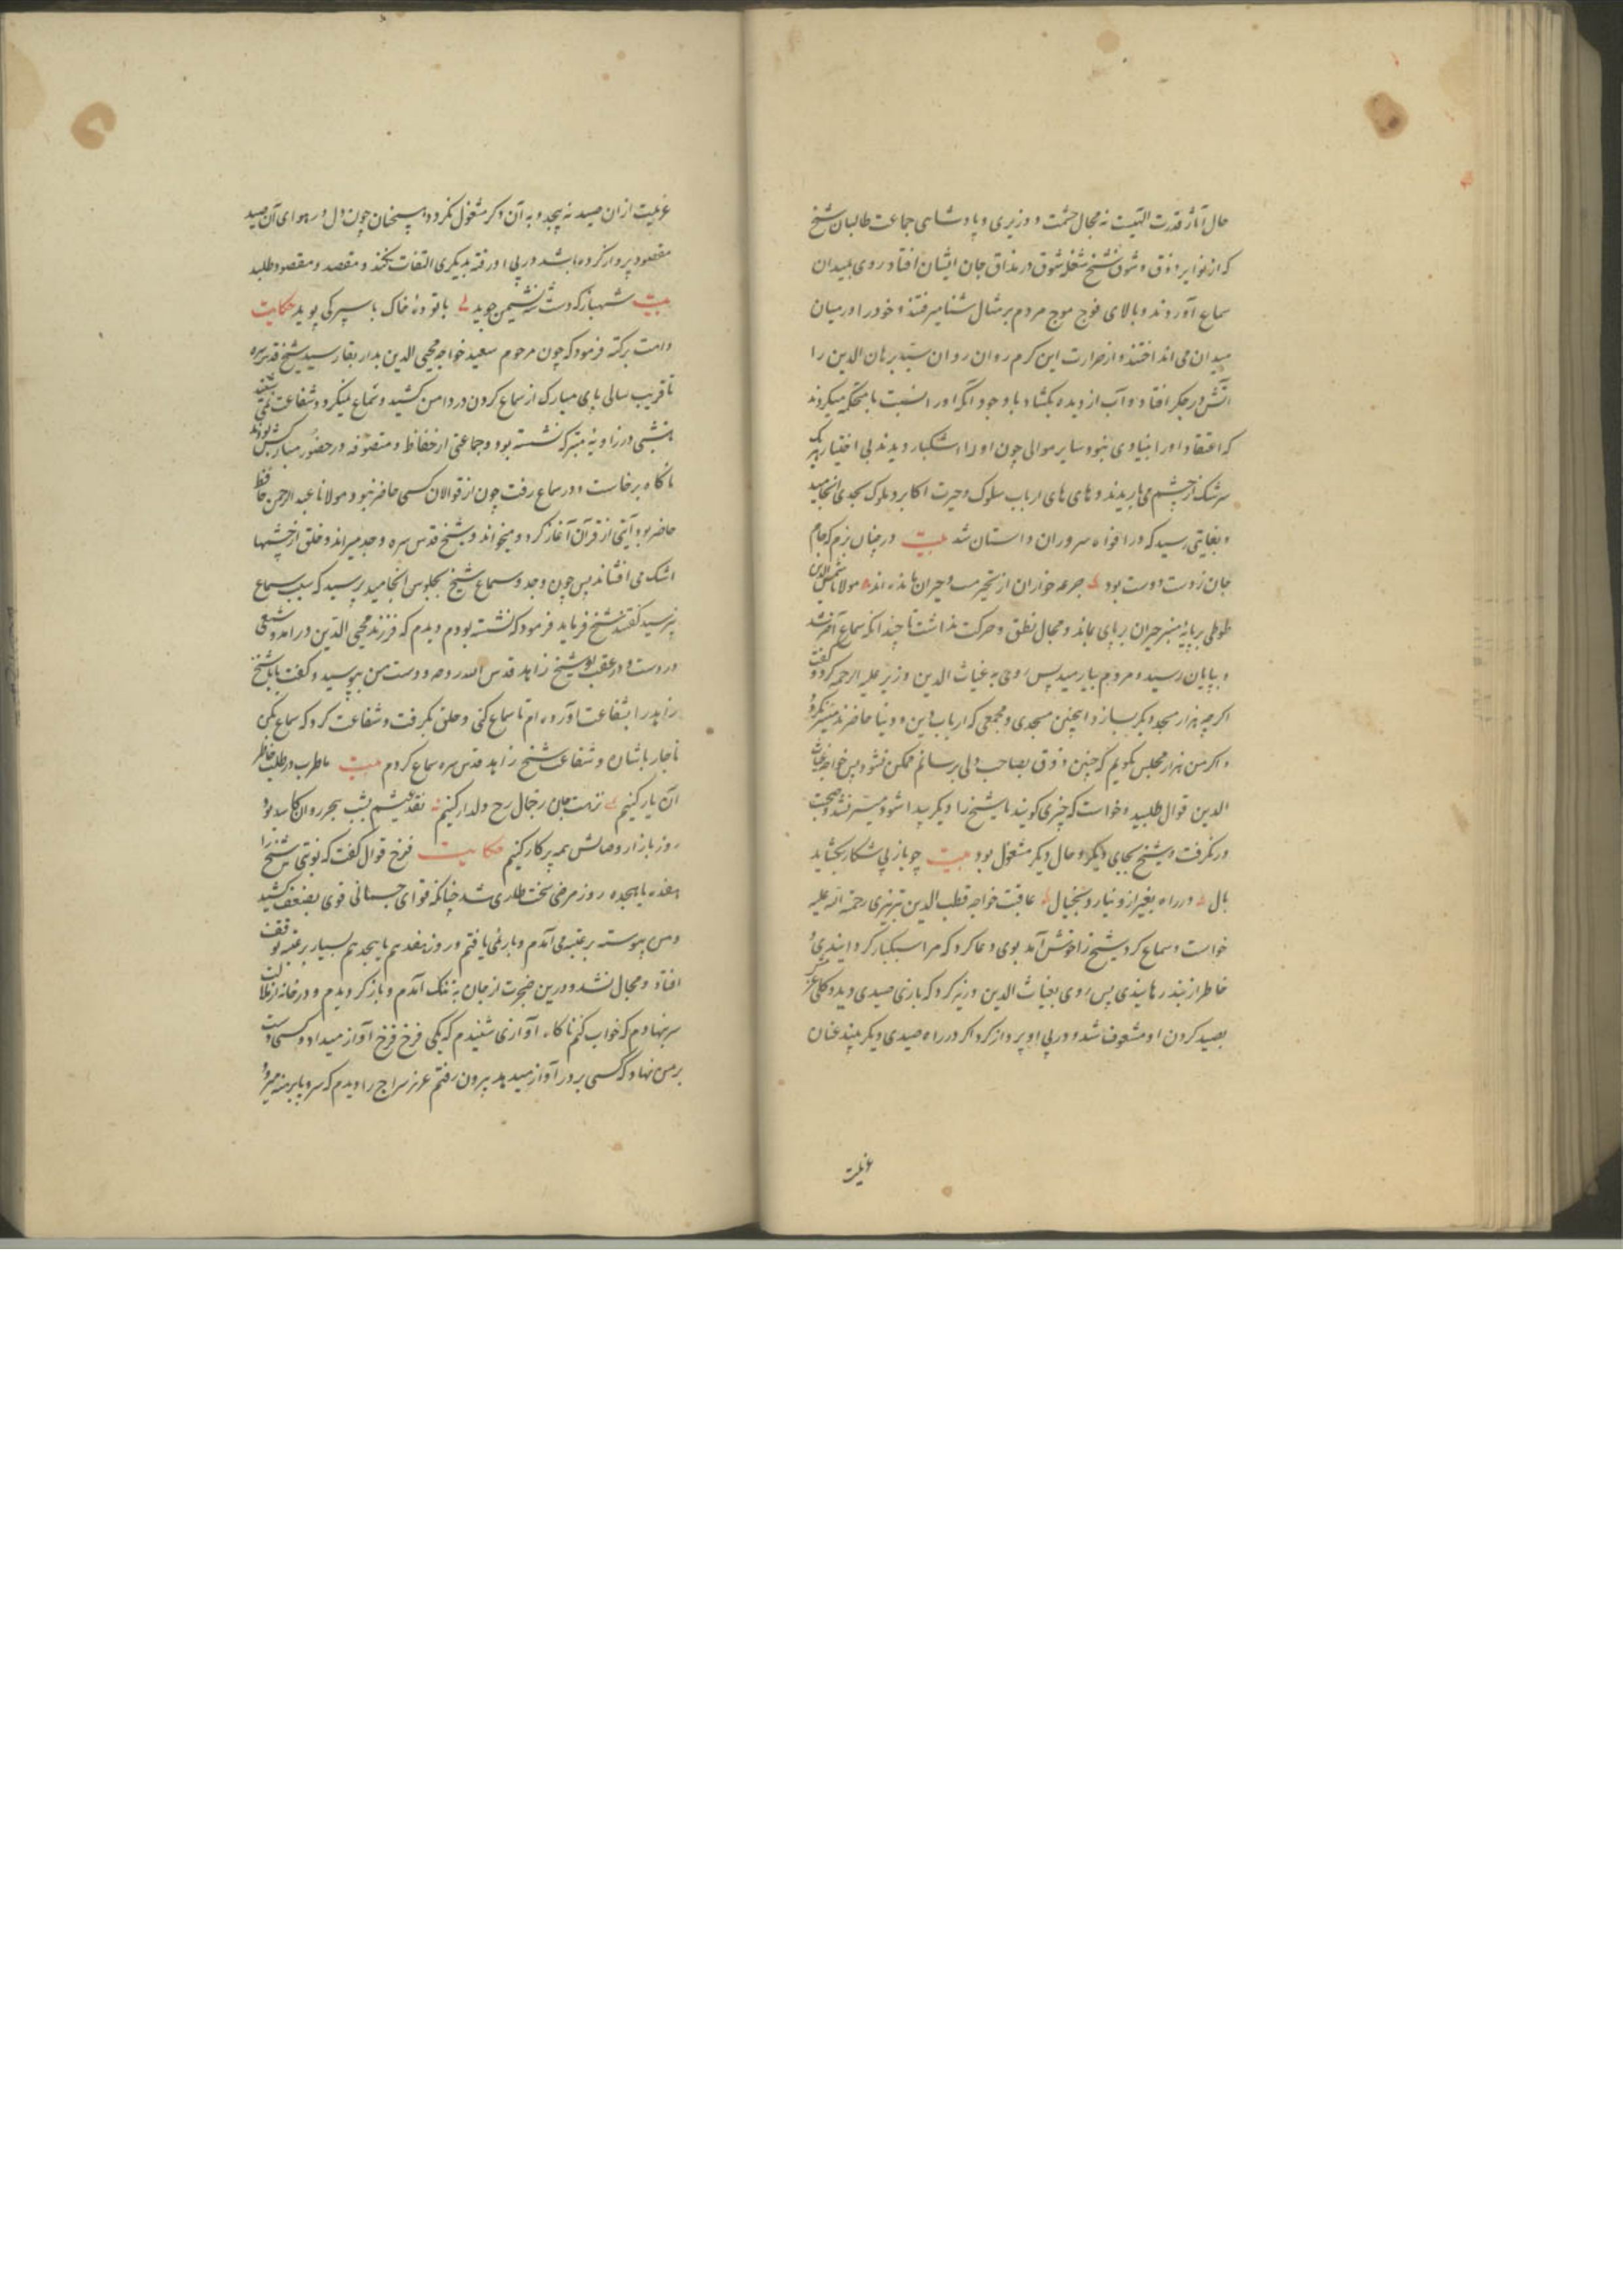 حال آثار قدرت الهیت نه مجال حشمت و وزیری و پادشاهی جماعت طالبان شیخ
که از نوایر ذوق و شوق شیخ شعله شوق در مذاق جان ایشان افتاد روی بمیدان
سماع آوردند و بالای فوج موج مردم بر مثال شنا میرفتند و خود را در میان
میدان می انداختند و از حرارت این کرم روان روان سید برهان الدین را
آتش در جکر افتاد و آب از دیده بکشاد با وجود آنکه او را نسبت با محکمه میکردند
که اعتقاد او را بنیادی نبود و سایر موالی چون او را اشکبار دیدند بی اختیار هر یک
سرشک از چشم می باریدند و های های ارباب سلوک و حیرت اکابر و ملوک بحدی انجامید
و بغایتی رسید که در افواه سروران داستان شد بیت در چنان بزم که جام
جان ز دست دوست بود جرعه خواران از تحیر مست و حیران مانده اند مولانا شمس الدین
طوطی بر پایه منبر حیران بر پای بماند و مجال نطق و حرکت نداشت تا چندانکه سماع آخر شد
و بپایان رسید و مردم بیارمید پس روی به غیاث الدین وزیر علیه الرحمه کرد و گفت
اکرچه هزار مسجد دیکر بسازد اینچنین مسجدی و مجمعی که ارباب دین و دنیا حاضرند میسر نکردد
و اکر من هزار مجلس بکویم که چنین ذوق بصاحب دلی برسانم ممکن نشود پس خواجه غیاث
الدین قوال طلبید و خواست که چیزی کویند تا شیخ را دیکر پیدا شود میسر نشد و صحبت
در نکرفت و شیخ بجای دیکر و حال دیکر مشغول بود بیت چو باز پی شکار بکشاید
بال در راه بغیر از و نیارد بخیال عاقبت خواجه قطب الدین تبریزی رحمة الله علیه
خواست و سماع کرد شیخ را خوش آمد بوی دعا کرد که مرا سبکبار کردانیدی و
خاطر از بند رهانیدی پس روی بغیاث الدین وزیر کرد که بازی صیدی دید و کلی
بصید کردن او مشعوف شد و در پی او پرواز کرد اکر در راه صیدی دیکر بیند عنان
عزیمت
عزیمت از ان صید نه پیچد و به آن دکر مشغول نکردد همچنان چون دل در هوای آن صید
مقصود پرواز کرده باشد در پی او رفته بدیکری التفات نکند و مقصد و مقصود طلبد
بیت شهباز که دست شه نشیمن جوید با توده خاک باسپرکی پوید حکایت
دامت برکته فرمود که چون مرحوم سعید خواجه محیی الدین بدار بقا رسید شیخ قدس سره
تا قریب سالی پای مبارک از سماع کردن در دامن کشید و سماع نمیکرد و شفاعت نمی شنید
تا شبی در زاویه متبرکه نشسته بود و جماعتی از حفاظ و متصوفه در حضور مبارکش بودند
ناکاه برخاست و در سماع رفت چون از قوالان کسی حاضر نبود مولانا عبد الرحمن حافظ
حاضر بود آیتی از قرآن آغاز کرد و میخواند و شیخ قدس سره وجد میراند و خلق از چشمها
اشک می افشاند پس چون وجد و سماع شیخ بجلوس انجامید پرسید که سبب سماع
پرسید کفتند شیخ فرماید فرمود که نشسته بودم دیدم که فرزند محیی الدین در امد و شمعی
در دست و در عقب او شیخ زاهد قدس الله روحه و دست من ببوسید و کفت بابا شیخ
زاهد را بشفاعت آورده ام تا سماع کنی و حلق بکرفت و شفاعت کرد که سماع بکن
ناچار باشان و شفاعت شیخ زاهد قدس سره سماع کردم بیت ما طرب در طلب خاطر
آن یار کنیم نزهت جان ز جمال رخ دلدار کنیم نقد عیشم بشب هجر روان کاسد بود
روز بازار وصالش همه پر کار کنیم حکایت فرخ قوال کفت که نوبتی شیخ را
هفده یا هیجده روز مرضی سخت طاری شد چنانکه قوای جسمانی قوی بضعف کشید
و من پیوسته بر عتبه می آمدم و بار نمی یافتم و روز هفدهم یا هیجدهم بسیار بر عتبه توقف
افتاد و مجال نشد و درین ضجرت از جان به تنک آمدم و باز کردیدم و در خانه از ملالت
سر بنهادم که خواب کنم ناکاه آوازی شنیدم که یکی فرخ فرخ آواز میداد و کسی دست
بر من نهاد که کسی بر در آواز میدهد بیرون رفتم عزیز سراج را دیدم که سر و پا برهنه میرود